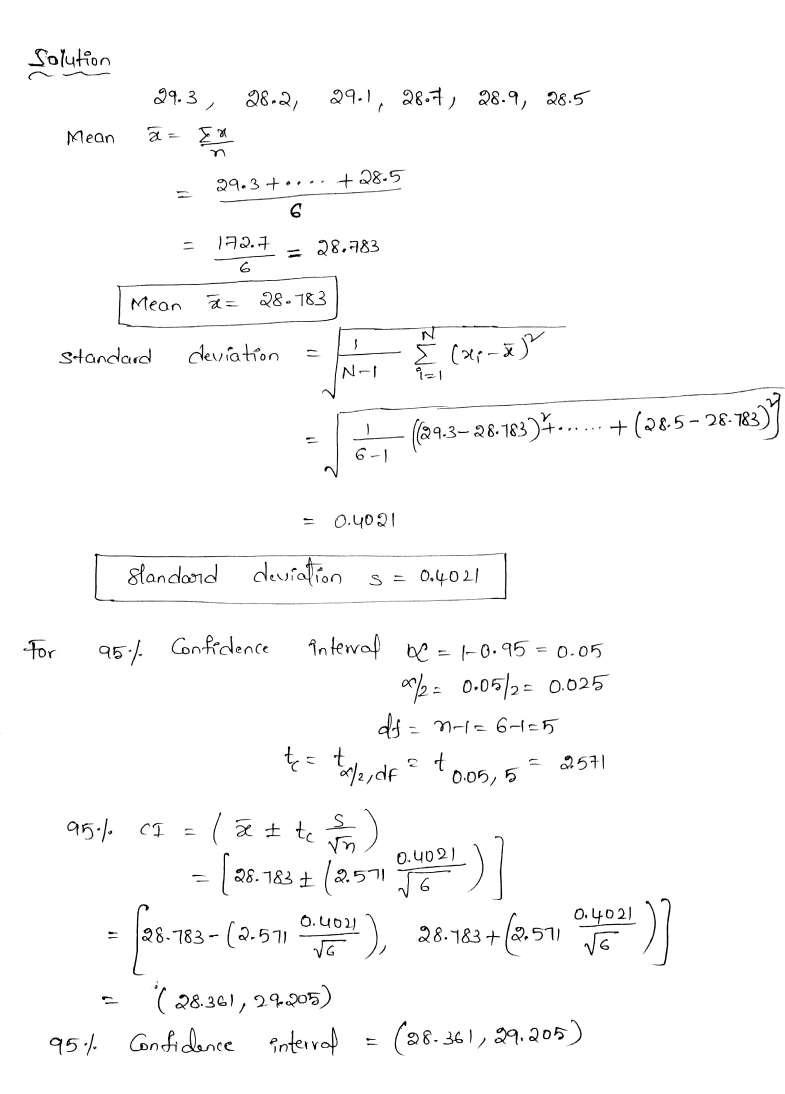 Solution
29.3, 28.2, 29.1, 28.7, 28.9, 28.5
Mean x̄ = Σx/n
= 29.3 + ..... + 28.5 / 6
= 172.7/6 = 28.783
Mean x̄ = 28.783
Standard deviation = √(1/(N-1) Σ_{i=1}^{N} (xᵢ - x̄)²)
= √(1/(6-1) ((29.3 - 28.783)² + ...... + (28.5 - 28.783)²)]
= 0.4021
Standard deviation s = 0.4021
For 95% Confidence interval α = 1-0.95 = 0.05
α/2 = 0.05/2 = 0.025
df = n-1 = 6-1 = 5
t_c = t_{α/2, dF} = t_{0.05, 5} = 2.571
95% CI = (x̄ ± t_c s/√n)
= [28.783 ± (2.571 0.4021/√6)]
= [28.783 - (2.571 0.4021/√6), 28.783 + (2.571 0.4021/√6)]
= (28.361, 29.205)
95% Confidence interval = (28.361, 29.205)